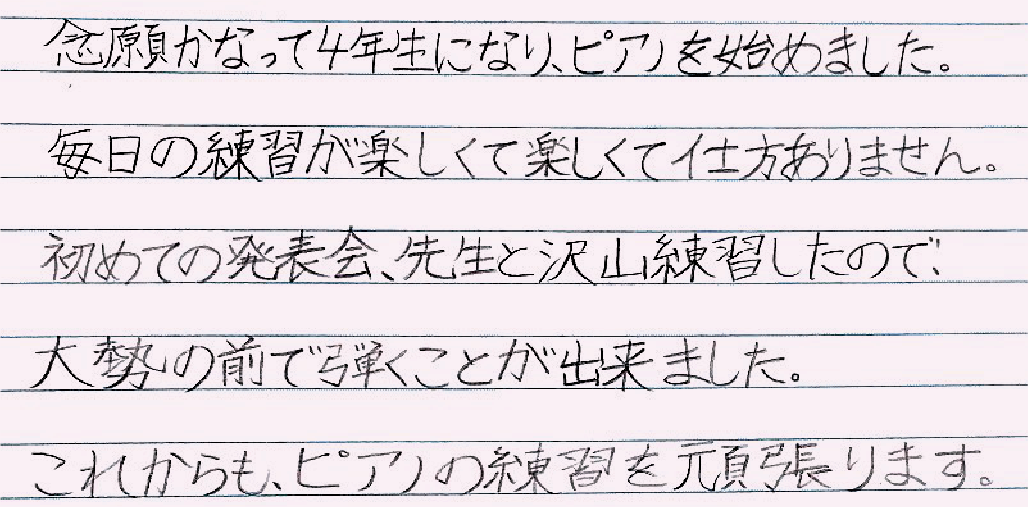 念願かなって4年生になり、ピアノを始めました。
毎日の練習が楽しくて楽しくて仕方ありません。
初めての発表会、先生と沢山練習したので、
大勢の前で弾くことが出来ました。
これからも、ピアノの練習を頑張ります。